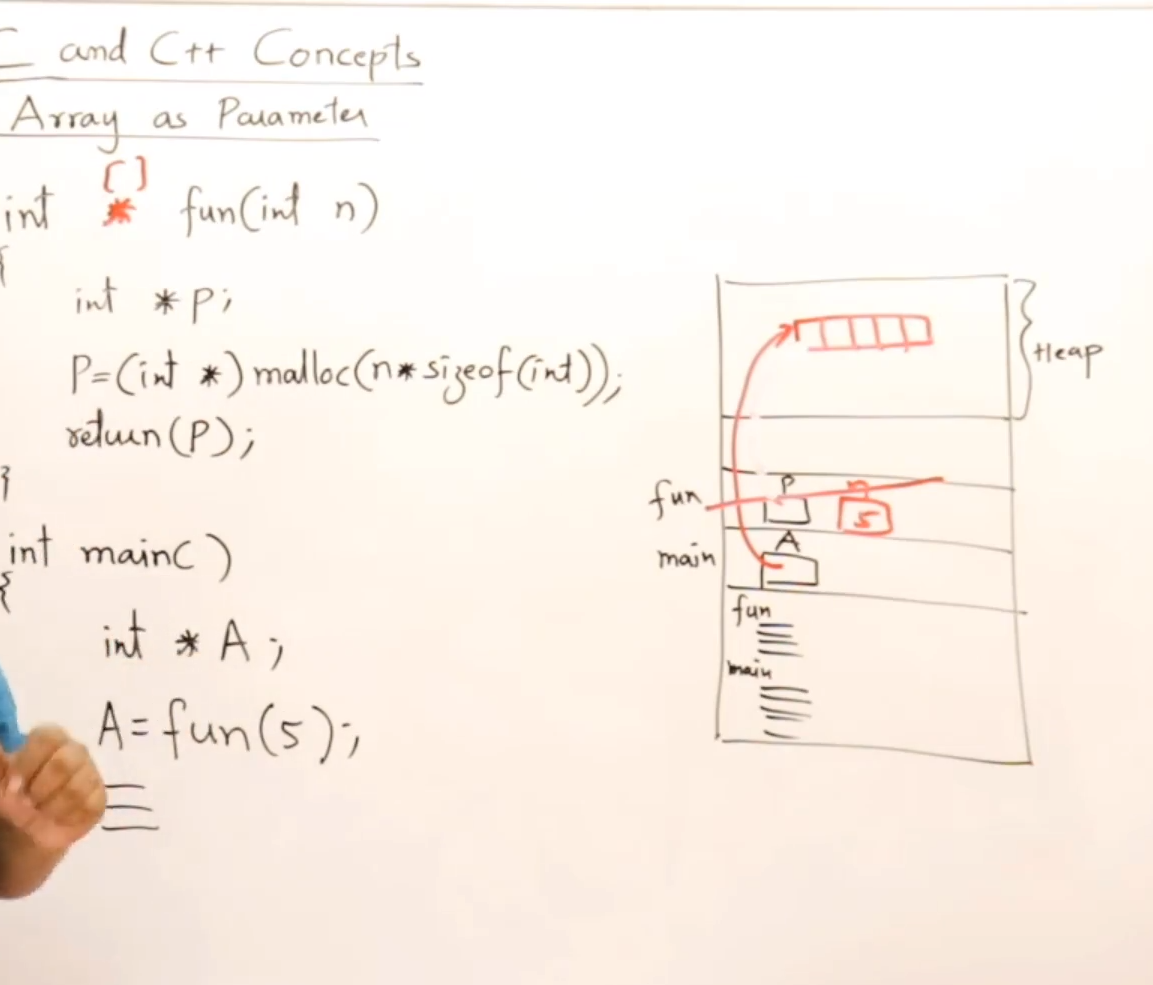 C and C++ Concepts
Array as Parameter
[]
int * fun(int n)
{
int *p;
P=(int *)malloc(n*sizeof(int));
return(P);
}
int main()
{
int *A;
A=fun(5);
Heap
fun P n
5
main A
fun
main